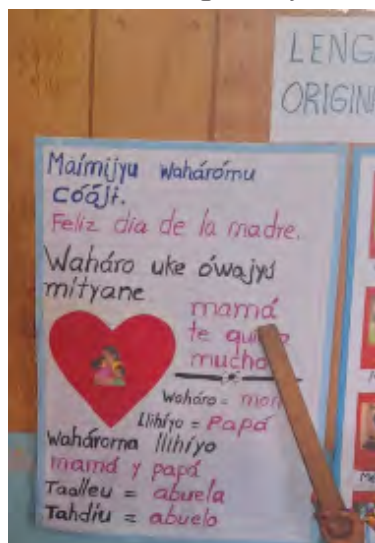 LENG
ORIGIN
Maímijyu wahárómu
cóójɨ.
Feliz dia de la madre.
Waháro uke ówajyú
mítyane
mamá
te
mucho
Waháro = mam
Llihíyo = Papá
Wahároma llihíyo
mamá y papá
Taalleu = abuela
Tahdíu = abuelo